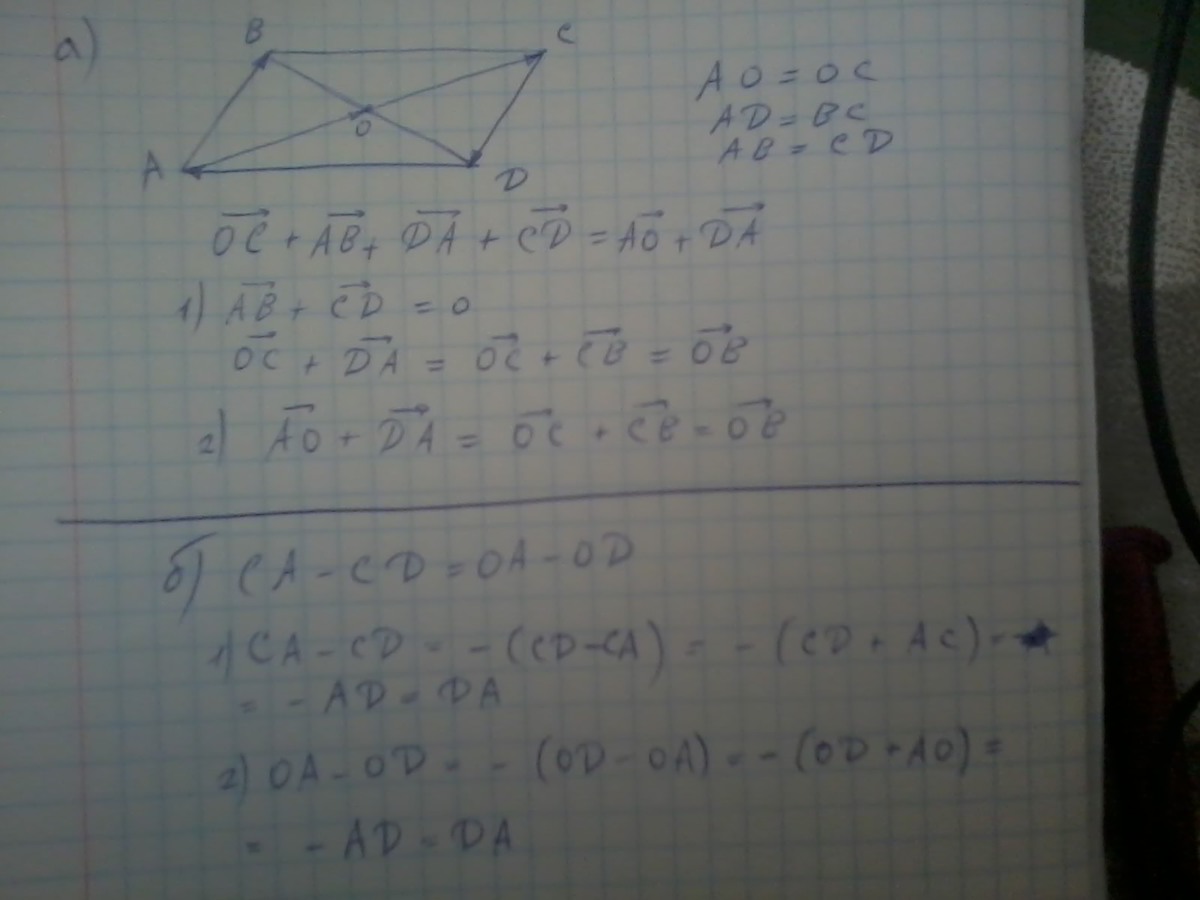 а)
B C
O
A D
AO = OC
AD = BC
AB = CD
OC + AB + DA + CD = AO + DA
1) AB + CD = 0
OC + DA = OC + CB = OB
2) AO + DA = OC + CB = OB
б) CA - CD = OA - OD
1) CA - CD = -(CD - CA) = -(CD + AC) =
= - AD = DA
2) OA - OD = -(OD - OA) = -(OD + AO) =
= - AD = DA